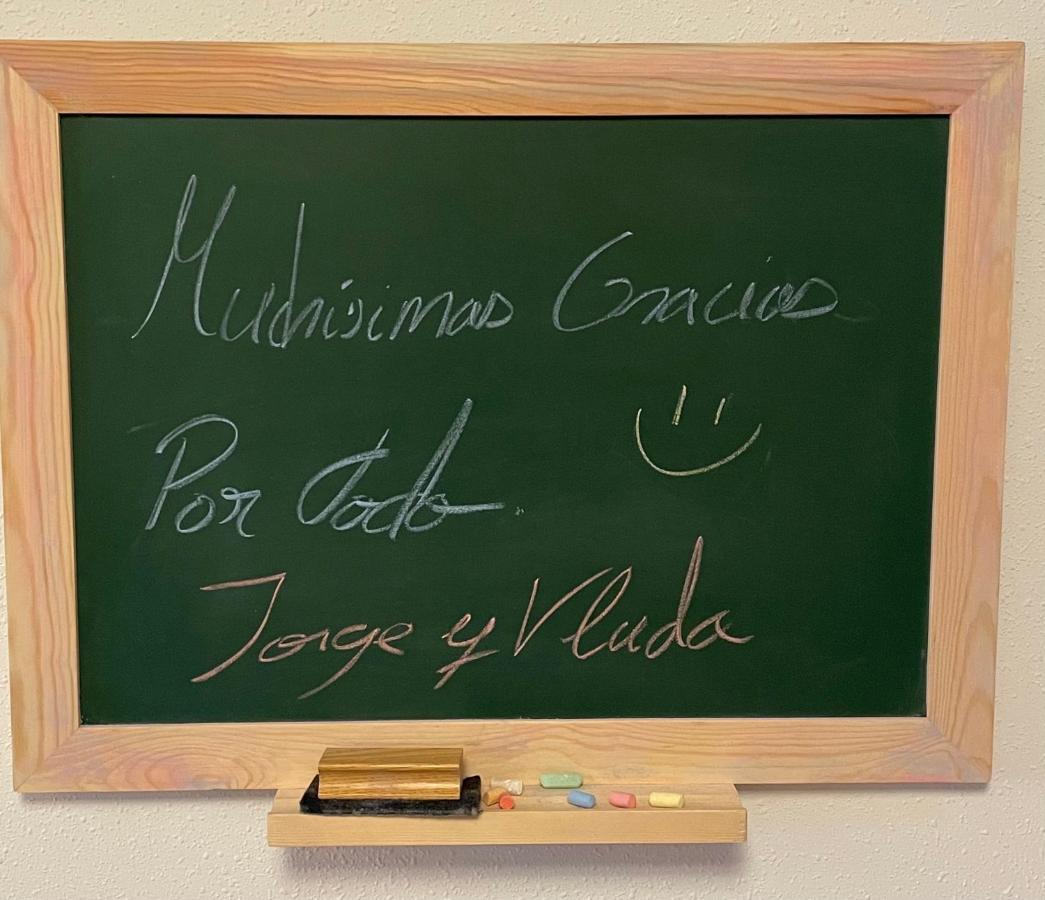 Muchisimas Gracias
Por Todo.
Jorge y Vlada